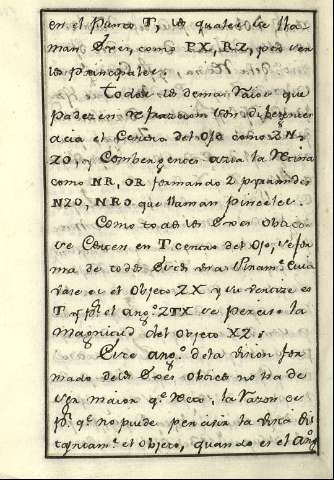 en el Punto T, los quales se lla-
man Exes, como PX, RZ, pero son
los principales.
Todos los demas Raios que
padezen Refraccion son dibergentes
acia el Centro del Ojo como ZN,
ZO, y Combengentes acia la Retina
como NR, OR formando 2 piramides
NZO, NRO que llaman pinceles.
Como todos los Exes
se Crucen en T. Centro del Ojo, se for
ma de todos Exes una Piram.e Cuia
vase es el Objeto ZX y su vertize es
T y p.r el ang.o ZTX se percive la
Magnitud del Objeto XZ.
Este ang.o de la vision for
mado de los Exes opticos no ha de
ser maior q.e Recto: la Razon es
p.r q.e no puede percivir la vista dis
tintam.e el objeto, quando es el ang